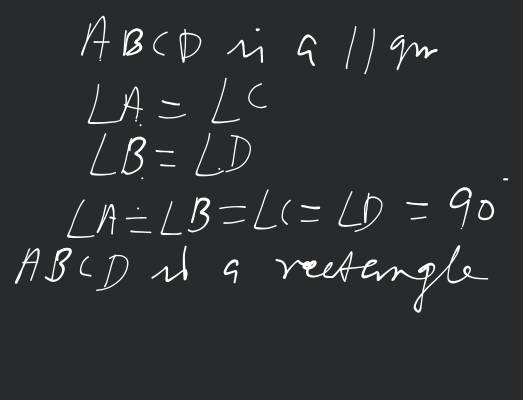 ABCD is a ||gm
∠A = ∠C
∠B = ∠D
∠A = ∠B = ∠C = ∠D = 90°
ABCD is a rectangle